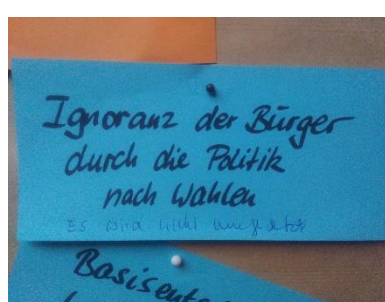 Ignoranz der Bürger
durch die Politik
nach Wahlen
Es wird nicht umgesetzt